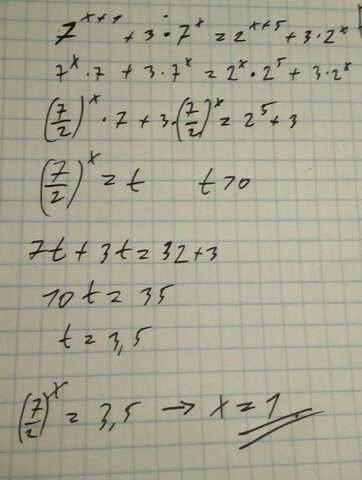 7^{x+1} + 3 · 7^x = 2^{x+5} + 3 · 2^x
7^x · 7 + 3 · 7^x = 2^x · 2^5 + 3 · 2^x
(7/2)^x · 7 + 3 · (7/2)^x = 2^5 + 3
(7/2)^x = t t > 0
7t + 3t = 32 + 3
10t = 35
t = 3,5
(7/2)^x = 3,5 → x = 1.